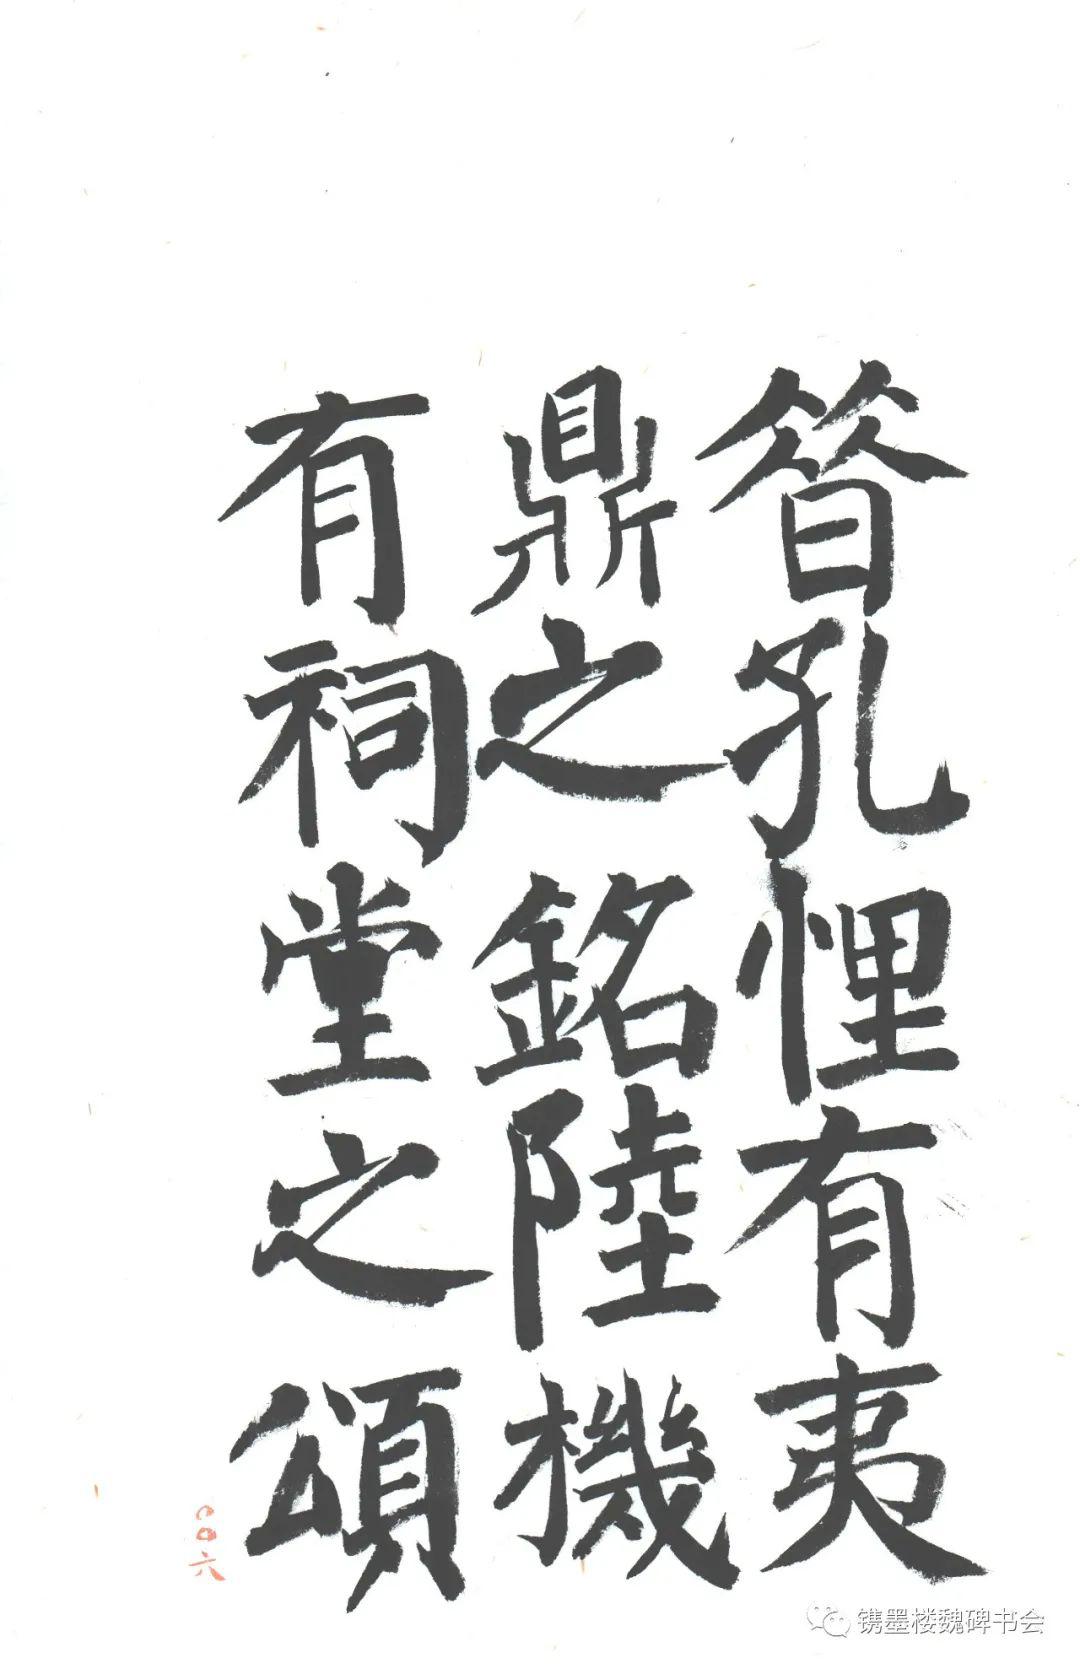 昔孔悝有夷
鼎之銘陸機
有祠堂之頌
镌墨楼魏碑书会